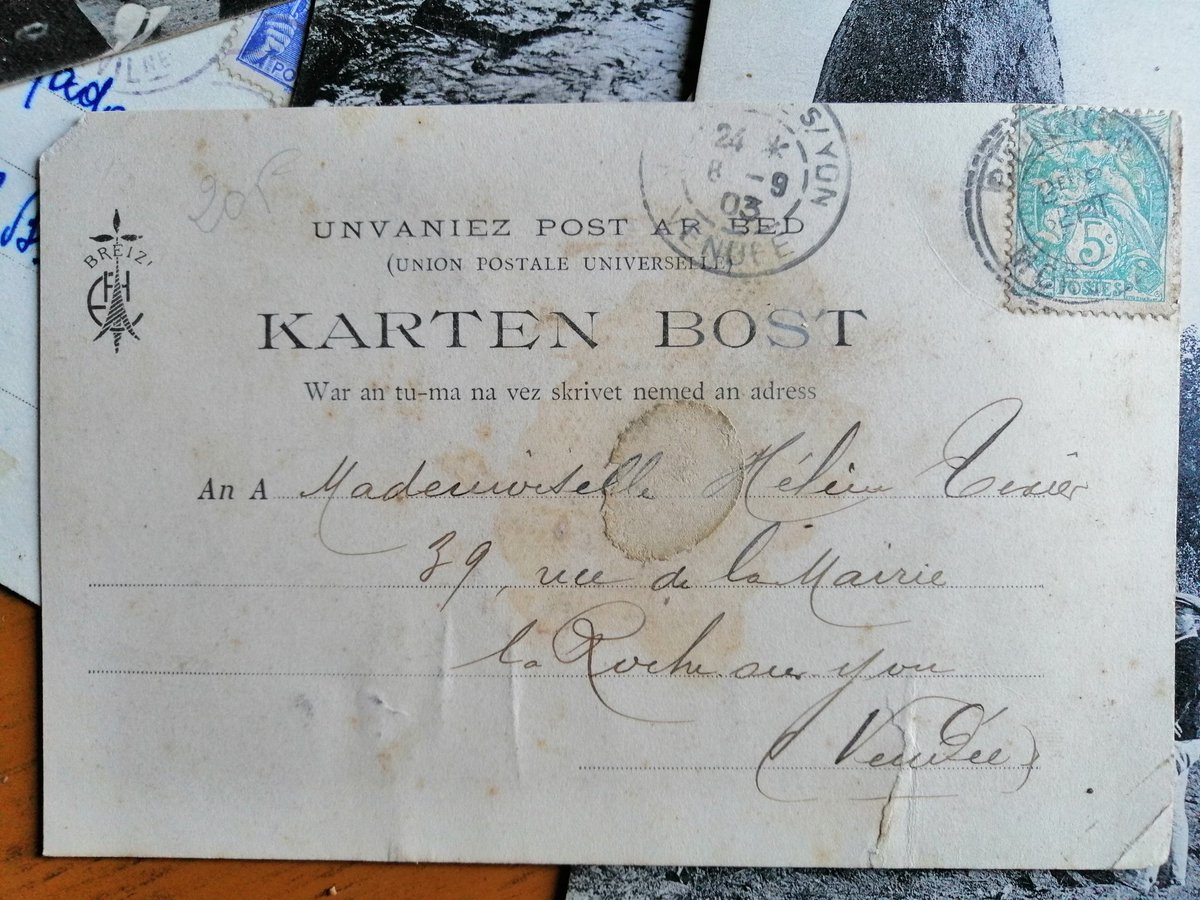 20f
UNVANIEZ POST AR BED
(UNION POSTALE UNIVERSELLE)
KARTEN BOST
War an tu-ma na vez skrivet nemed an adress
BREIZ'
An A Mademoiselle Hélène Tesier
39, rue de la Mairie
la Roche sur yon
(Vendée)
24 *
8 -9
03
S/YON
VENDEE
5c
POSTES
PO